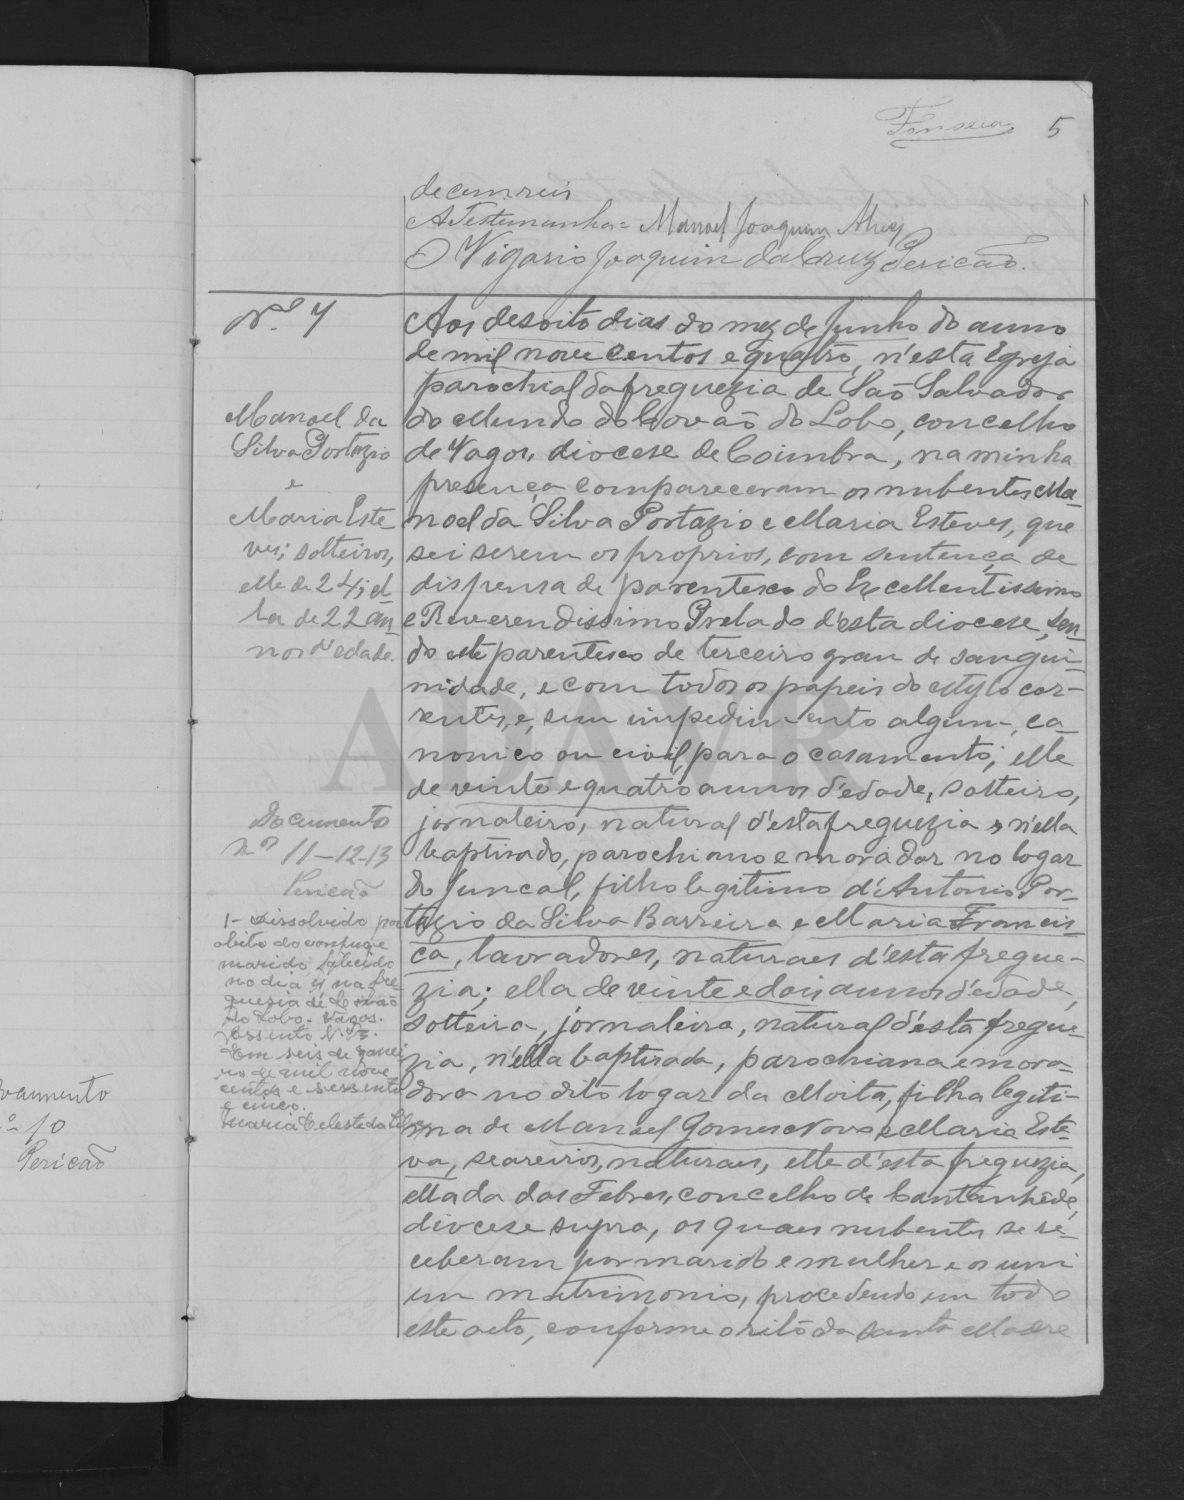 Fonseca 5
de cem reis
A Testemunha = Manoel Joaquim
O Vigario Joaquim da Cruz Pericão.
N.º 7
Manoel da
Silva Portazio
e
Maria Este
ves; solteiros,
elle de 24; el
la de 22 an-
nos d'edade.
Documentos
n.os 11-12-13
Pericão
1 - Dissolvido por
obito do conjuge
marido, falecido
no dia na fre-
guesia de Covão
do Lobo - Vagos.
Assento N.º
Em seis de Janei
ro de mil nove
centos e sessenta
e cinco.
Maria Celeste da
Aos desoito dias do mez de Junho do anno
de mil nove centos e quatro, n'esta Egreja
parochial da freguezia de São Salvador
do Mundo do Covão do Lobo, concelho
de Vagos, diocese de Coimbra, na minha
presença compareceram os nubentes Ma-
noel da Silva Portazio e Maria Esteves, que
sei serem os proprios, com sentença de
dispensa de parentesco do Excellentissimo
e Reverendissimo Prelado d'esta diocese, sen-
do este parentesco de terceiro grau de sangui-
nidade, e com todos os papeis do estylo cor-
rentes, e, sem impedimento algum, ca-
nonico ou civil, para o casamento; elle
de vinte e quatro annos d'edade, solteiro,
jornaleiro, natural d'esta freguezia e n'ella
baptisado, parochiano e morador no logar
do Juncal, filho legitimo d'Antonio Por-
tazio da Silva Barreira e Maria Francis-
ca, lavradores, naturaes d'esta fregue-
zia; ella de vinte e dois annos d'edade,
solteira, jornaleira, natural d'esta fregue-
zia, n'ella baptisada, parochiana e mora-
dora no dito logar da Moita, filha legiti-
ma de Manoel Gomes Novo e Maria Este-
va, seareiros, naturaes, elle d'esta freguezia,
ella da das Febres, concelho de Cantanhede,
diocese supra, os quaes nubentes se re-
ceberam por marido e mulher e os uni
em matrimonio, procedendo em todo
este acto, conforme o rito da Santa Madre
ocumento
n.º 10
Pericão
ADAVR